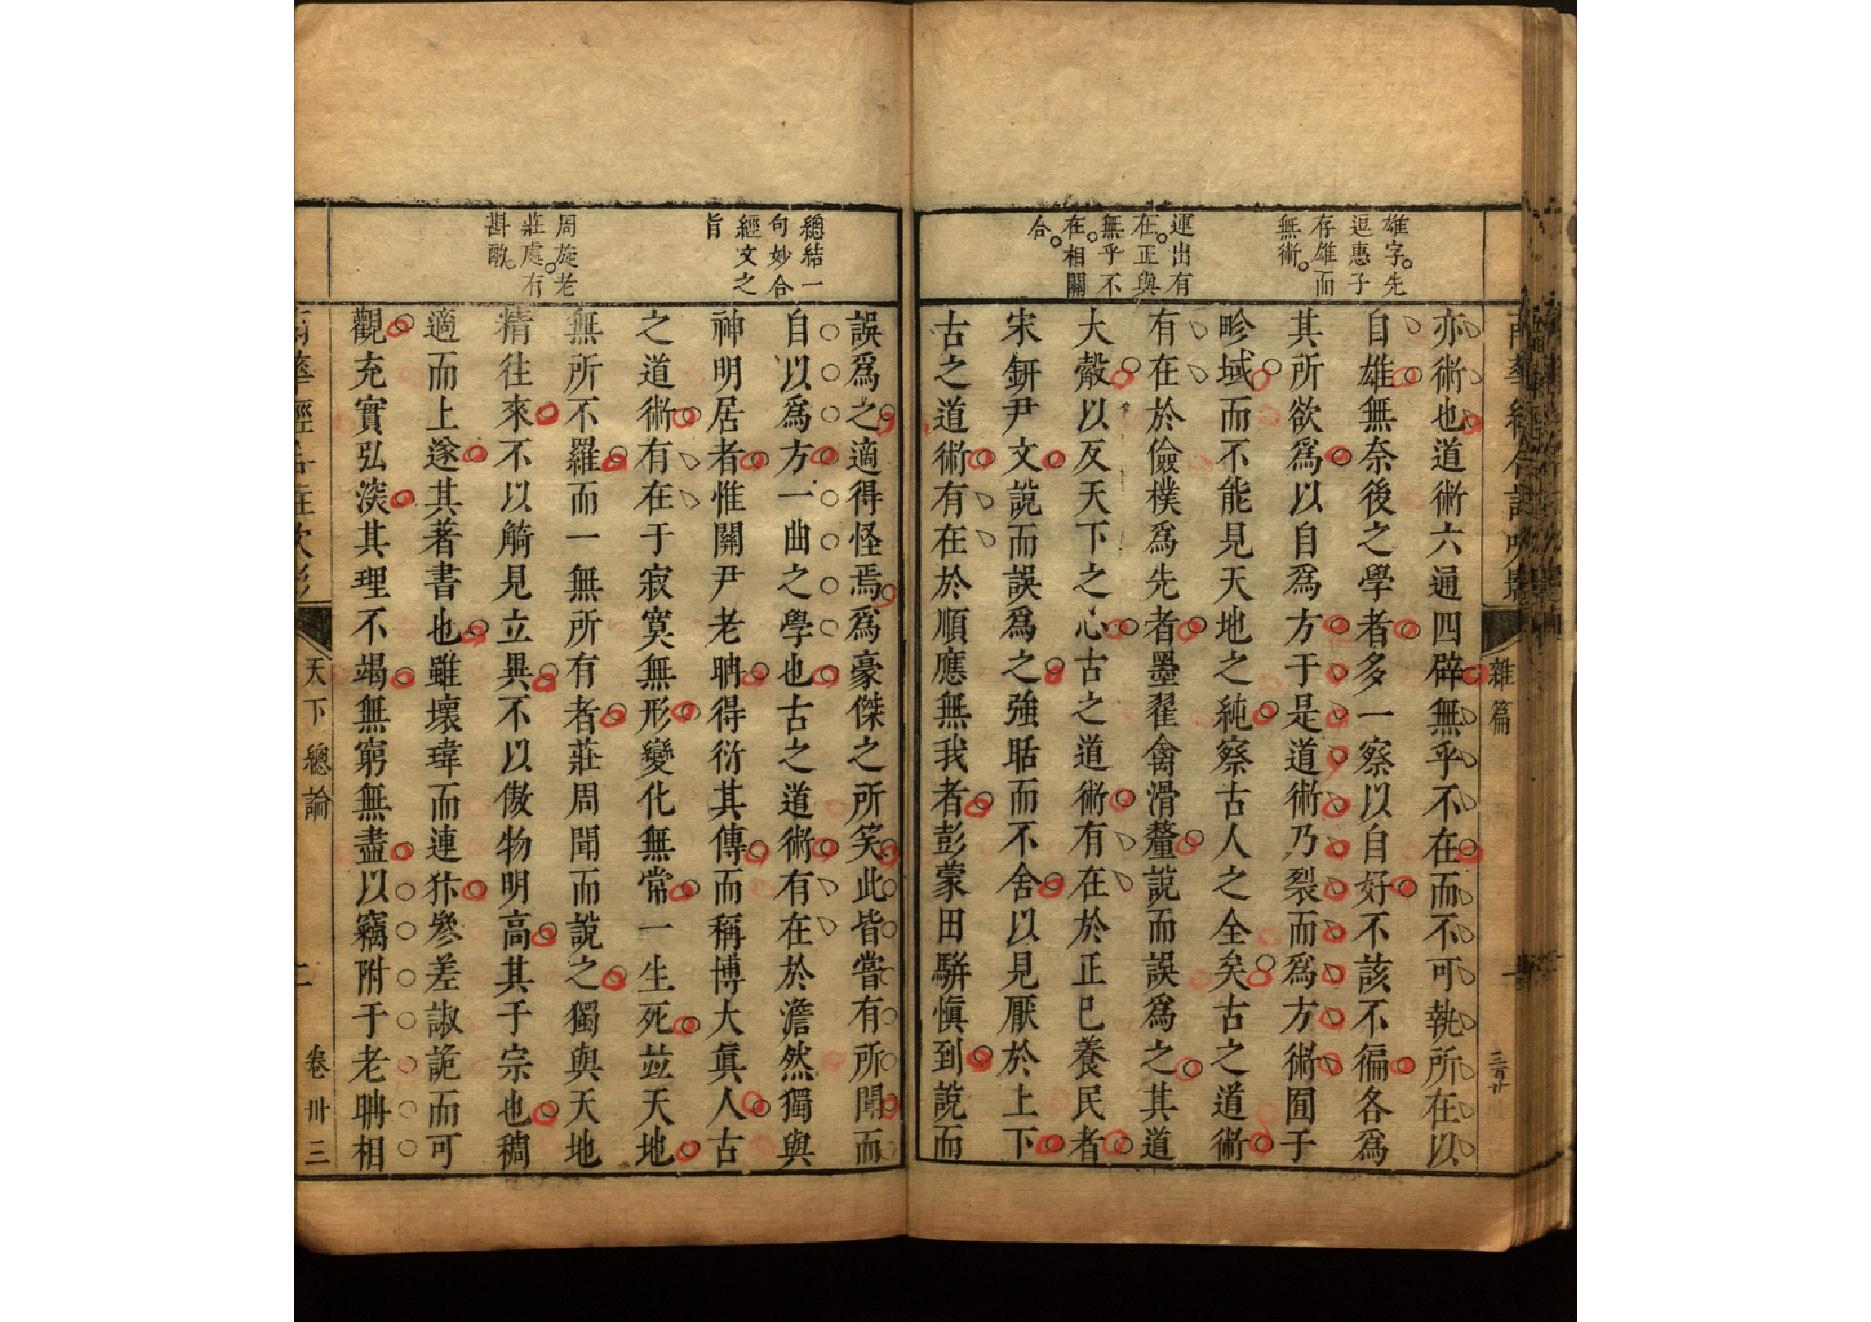 雄字先
逗惠子
存雄而
無術
運出有
在正與
無乎不
在相關
合
亦術也道術六通四辟無乎不在而不可執所在以
自雄無奈後之學者多一察以自好不該不徧各爲
其所欲爲以自爲方于是道術乃裂而爲方術囿于
畛域而不能見天地之純察古人之全矣古之道術
有在於儉樸爲先者墨翟禽滑釐說而誤爲之其道
大觳以反天下之心古之道術有在於正已養民者
宋鈃尹文說而誤爲之強聒而不舍以見厭於上下
古之道術有在於順應無我者彭蒙田駢愼到說而
雜篇
總結一
句妙合
經文之
旨
周旋老
莊處有
斟酌
誤爲之適得怪焉爲豪傑之所笑此皆嘗有所聞而
自以爲方一曲之學也古之道術有在於澹然獨與
神明居者惟關尹老聃得衍其傳而稱博大眞人古
之道術有在于寂寞無形變化無常一生死竝天地
無所不羅而一無所有者莊周聞而說之獨與天地
精往來不以觭見立異不以傲物明高其于宗也稠
適而上遂其著書也雖壞瑋而連犿參差諔詭而可
觀充實弘深其理不竭無窮無盡以竊附于老聃相
天下總論
二
卷卅三